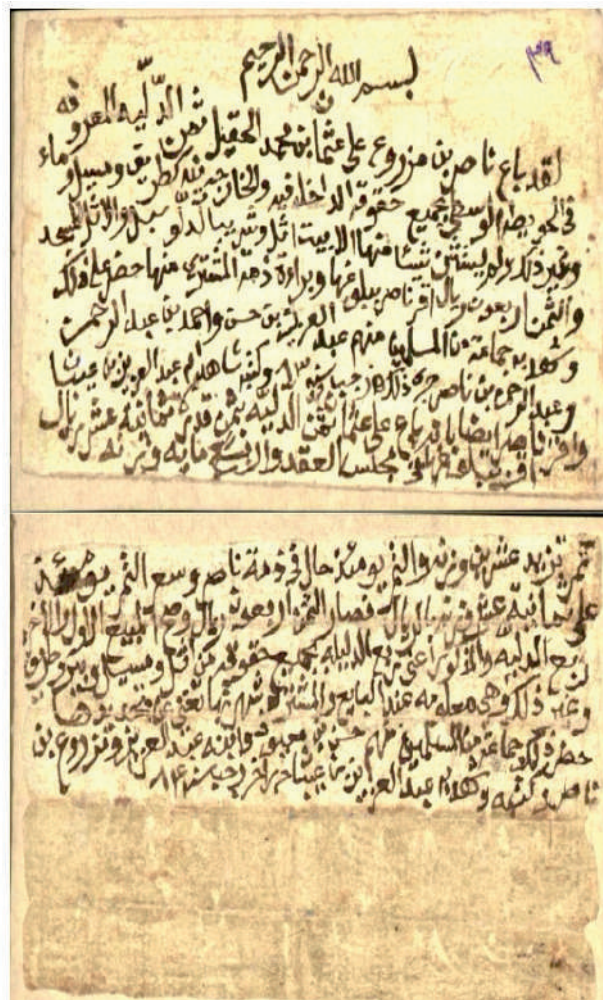 ٣٩
بسم الله الرحمن الرحيم
لقد باع ناصر بن مزروع على عثمان بن محمد الحقيل ثمن الدليه المعروفه
في الحويطه الوسطى بجميع حقوقه الداخله فيه والخارجة منه كطريق ومسيل وماء
وغير ذلك ولم يستثن شيئا منها الا بيت اثل وشريب بالدلو سبل والاثل للمسجد
والثمن اربعون ريال اقر ناصر ببلوغها وبراءة ذمة المشتري منها حضر على ذلك
وشهد به جماعة من المسلمين منهم عبد العزيز بن حسن واحمد بن عبد الرحمن
وعبد الرحمن بن ناصر جرى ذلك في رجب وكتبه شاهدا به عبد العزيز بن عيبان
واقر ناصر ايضا بانه باع على عثمان ثمن الدليه بثمن قدره ثمانية عشر ريال
مجلس العقد والا تسع مايه وزنه
تمر تزيد عشرين وزنه والتمر يومئذ حال في ذمة ناصر وسع التمر يومئذ
على ثمانية عشر وزنه بالريال فصار الثمن اربعون ريال وصح المبيع الاول والاخر
ربع الدليه والمذكور اعني ربع الدليه بجميع حقوقه من اثل ومسيل وبير وطريق
وغير ذلك وهي معلومه عند البايع والمشتري شهرتها تغني عن تحديدها
حضر ذلك جماعة من المسلمين منهم حسن بن معيوف وابنه عبد العزيز ومزروع بن
ناصر وكتبه وشهد به عبد العزيز بن عيبان اخر رجب سنه